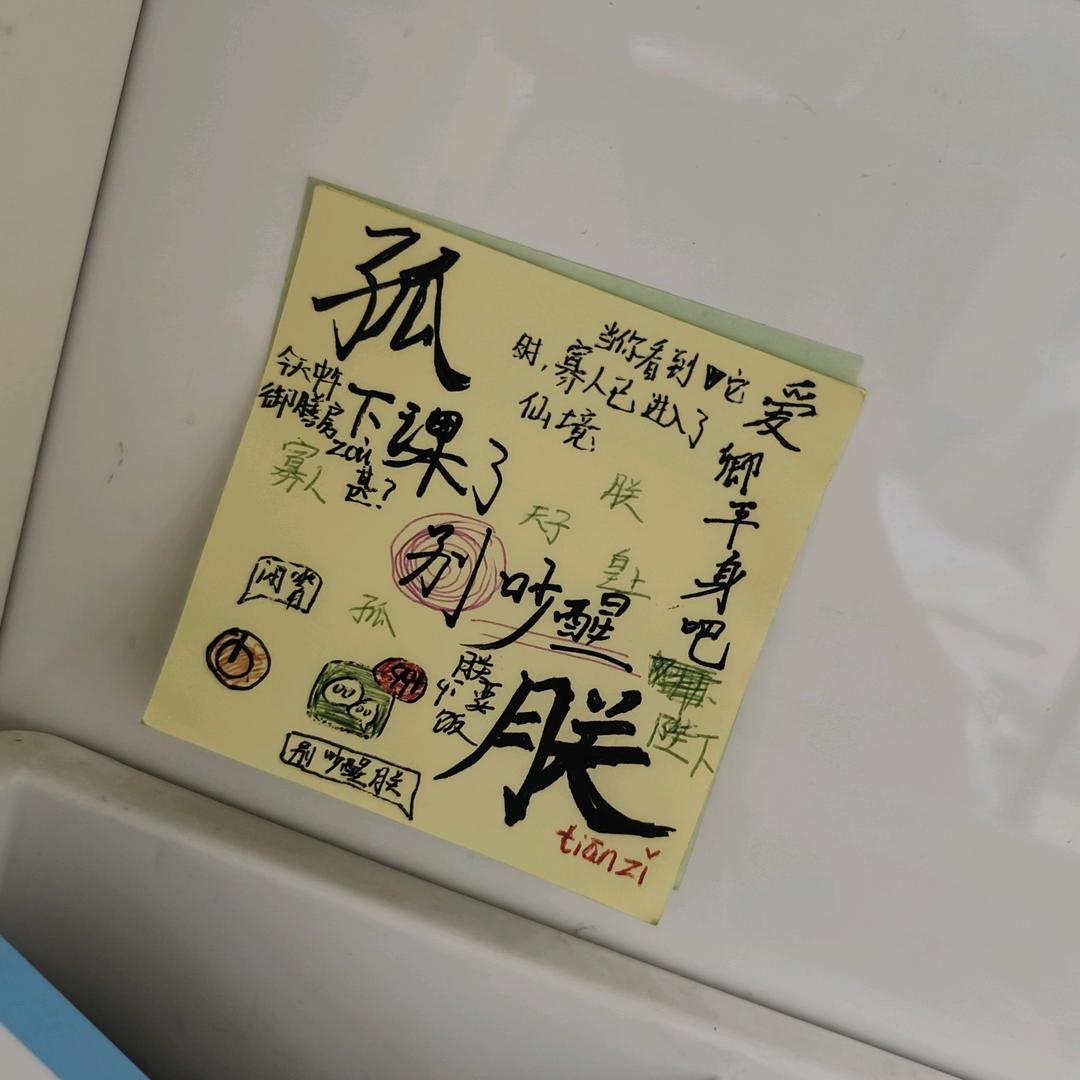 孤
下课了
别吵醒
朕
当你看到它
时，寡人已进入了
仙境
爱卿平身吧
今天中午
御膳房
zòu
甚？
寡人
天子
朕
皇上
孤
闭嘴
小
99+
朕要
吃饭
陛下
别吵醒朕
tiānzǐ